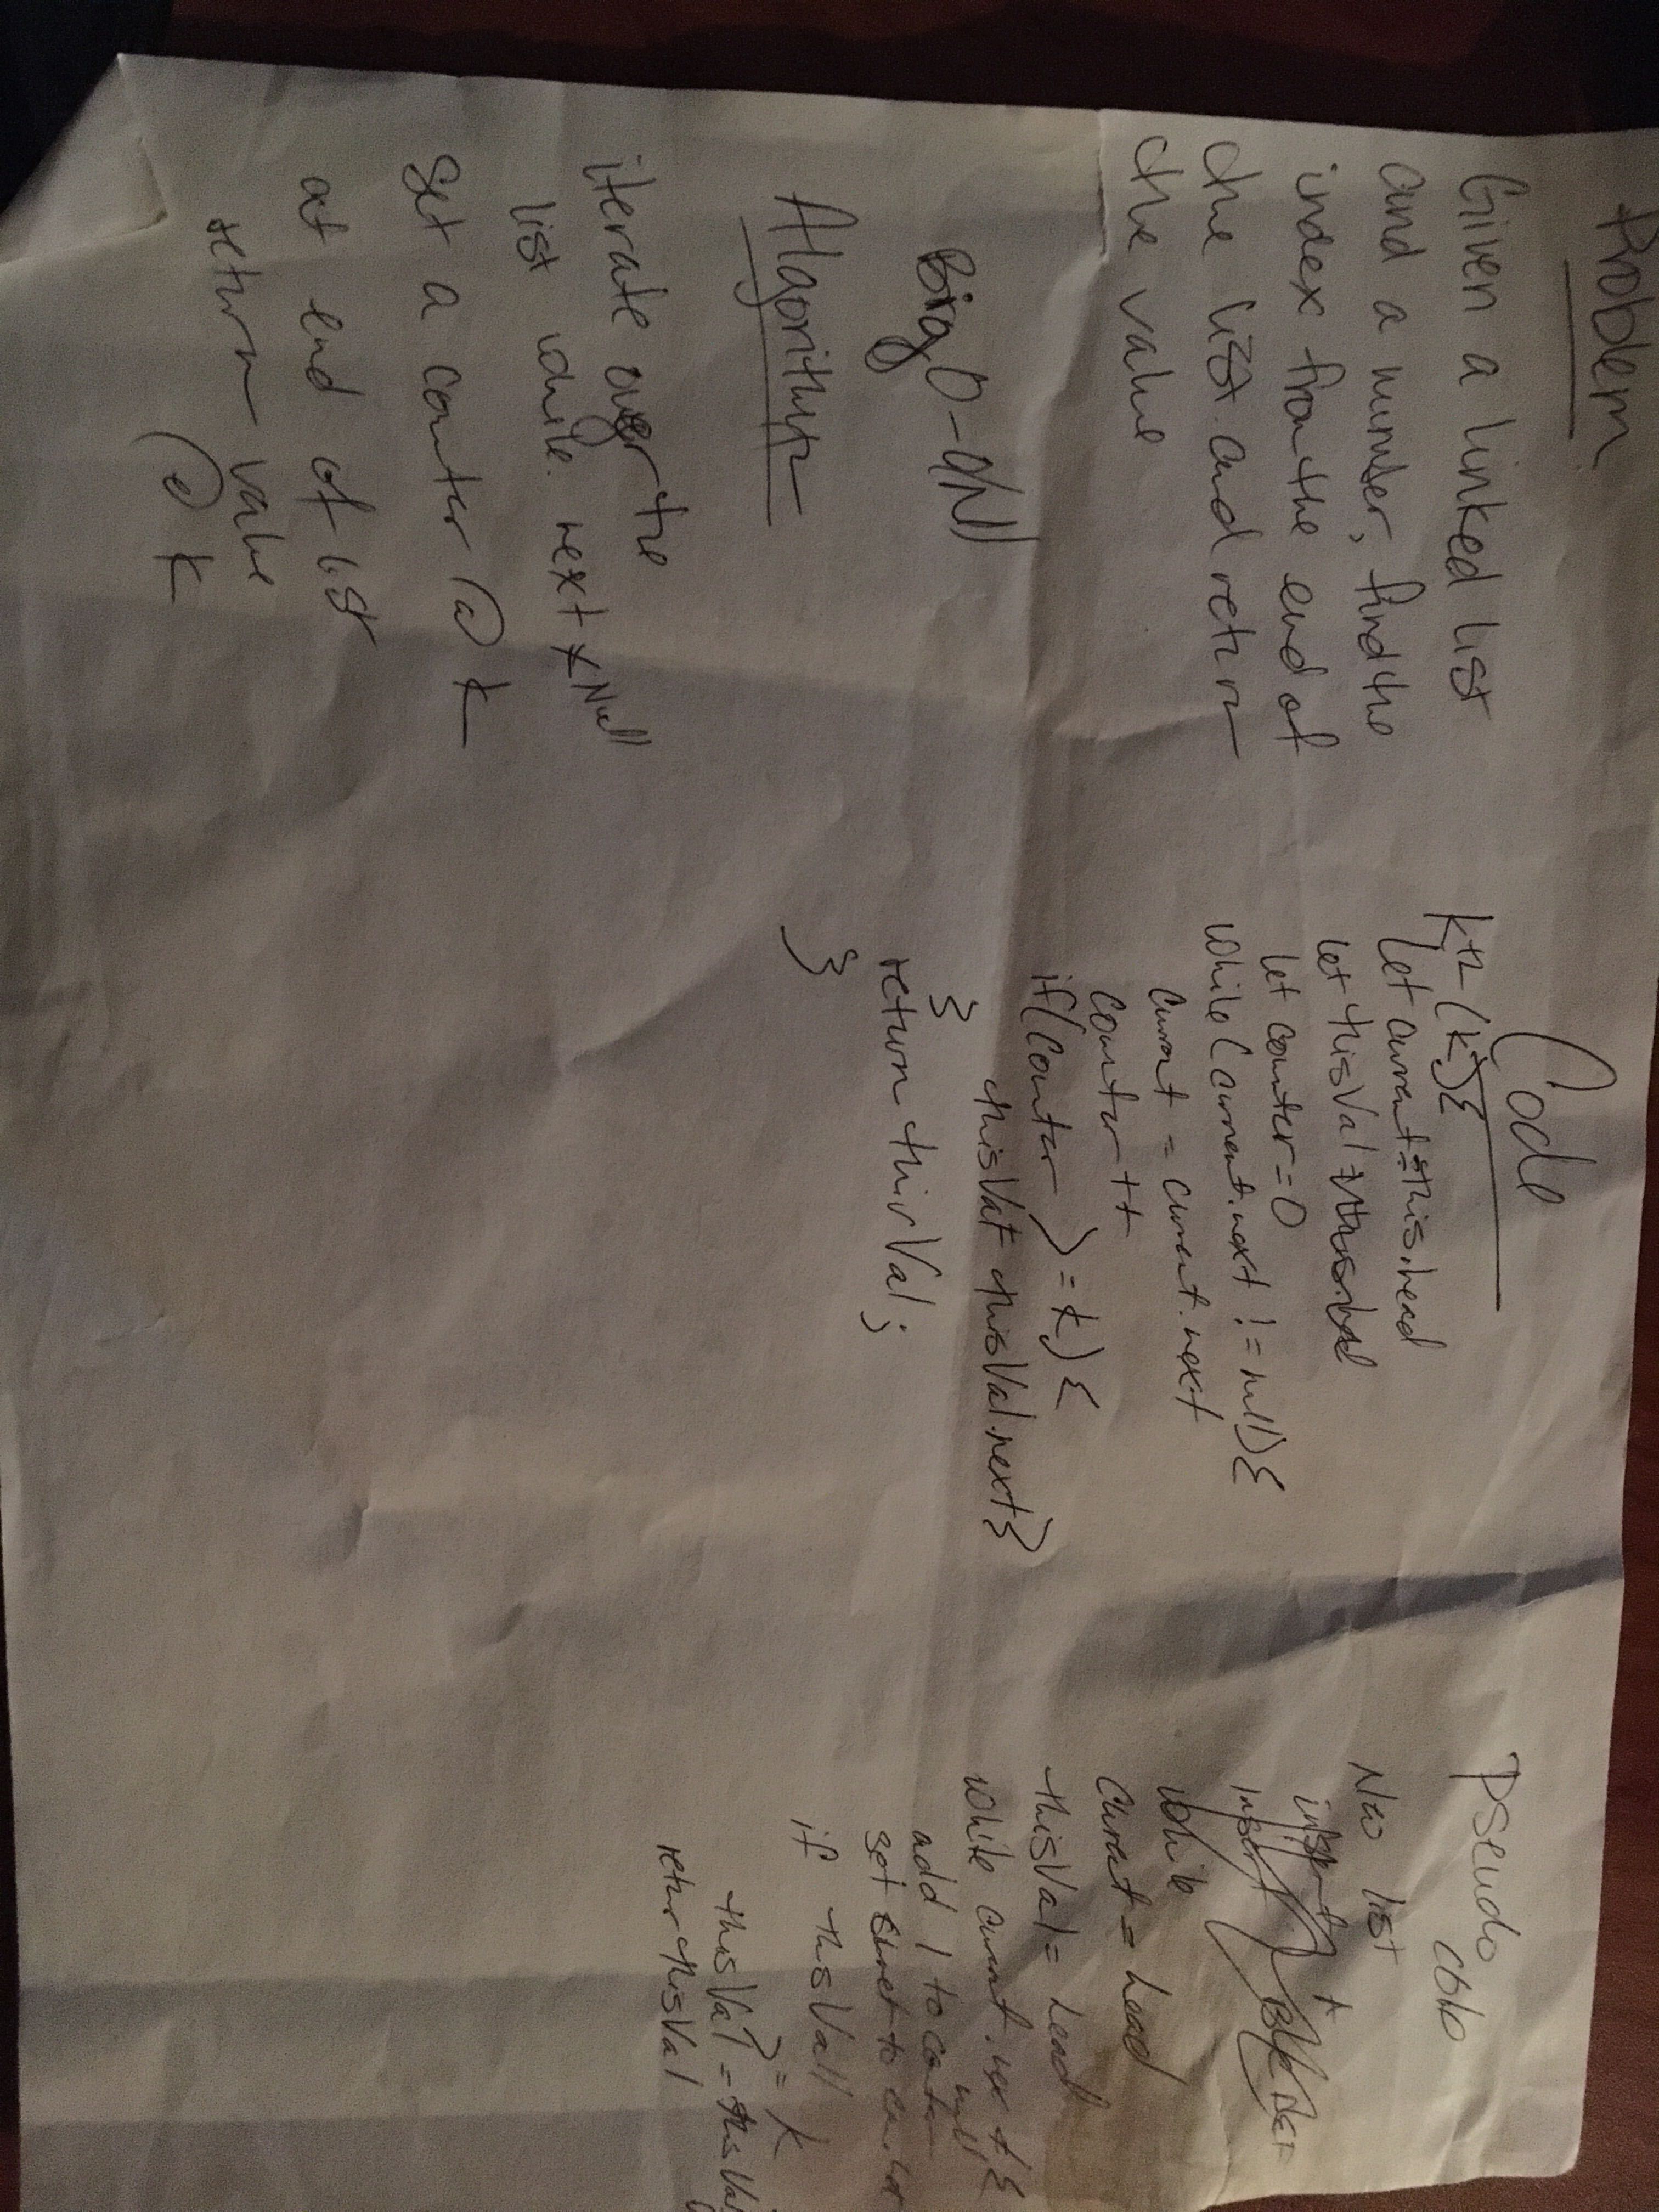 Problem
Given a linked list
and a number, find the
index from the end of
the list and return
the value
Big O - O(N)
Algorithm
iterate over the
list while next ≠ Null
Set a counter @ k
at end of list
return value
@ k
Code
kth (k){
let current = this.head
let thisVal = this.head
let counter = 0
while (current.next != null){
current = current.next
counter ++
if (counter >= k){
thisVal = thisVal.next}
}
return thisVal;
}
Pseudo
code
New list
insert
while
current = head
thisVal = head
while current.next {
null
add 1 to counter
set current to
if thisVal >= k
thisVal = thisVal
return thisVal